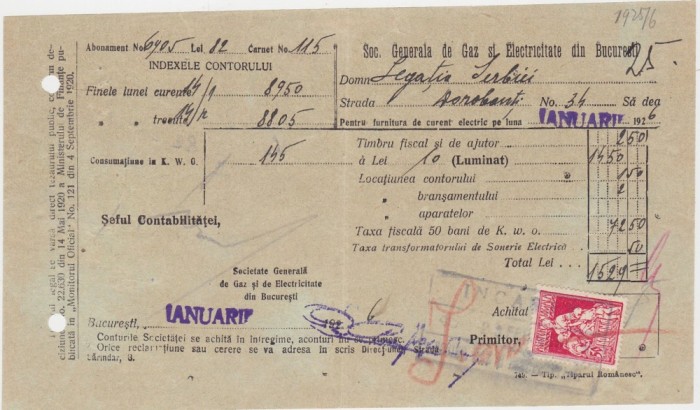 1925/6
Abonament No 6905 Lei 82 Carnet No. 115
INDEXELE CONTORULUI
Finele lunei curente 14/1 8950
" " trecute 8805
Consumațiune in K. W. O. 145
Șeful Contabilităței,
Societate Generală
de Gaz și de Electricitate
din București
București, IANUARIE 192 6
Conturile Societăței se achită în întregime, aconturi nu se primesc.
Orice reclamațiune sau cerere se va adresa în scris Direcțiunei Strada
Dârmăndr, 8.
Soc. Generala de Gaz și Electricitate din București
25
Domn Legația Serbiei
Strada Dorobanti No. 34 Să dea
Pentru furnitura de curent electric pe luna IANUARIE 1926
Timbru fiscal și de ajutor 2 50
à Lei 10 (Luminat) 1450
Locațiunea contorului 1 50
" branșamentului 2
" aparatelor
Taxa fiscală 50 bani de K. w. o. 72 50
Taxa transformatorului de Sonerie Electrică 50
Total Lei 1529
Achitat
Primitor,
Teb. — Tip. „Tiparul Românesc".
legal se varsă direct tezaurului public, conform de-
ciziunei No. 22.630 din 14 Mai 1920 a Ministerului de Finanțe pu-
blicată în „Monitorul Oficial" No. 121 din 4 Septembrie 1920.